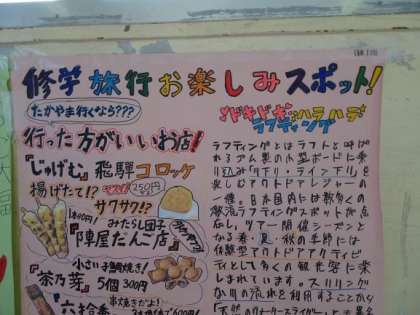 修学旅行お楽しみスポット!
たかやま行くなら???
行った方がいいお店!
『じゅげむ』飛騨コロッケ
揚げたて!?
250円
サクサク!?
みたらし団子
『陣屋だんご店』
小さい子鯛焼き!
『茶乃芽』5個300円
串焼きだよ!
ドキドキハラハラ
ラフティング
ラフティングとはラフトと呼ば
れるゴム製の小型ボートに乗
り込み「下り・ライン下り」を
楽しむアウトドアレジャーの
一種。日本国内には数多くの
激流ラフティングスポットが点
在し、ツアー開催シーズンと
なる春・夏・秋の季節には
体験型アウトドアアクティビ
ティとして多くの観光客に楽
しまれています。スリリング
な川の流れを利用することから
「天然のウォータースライダー」と